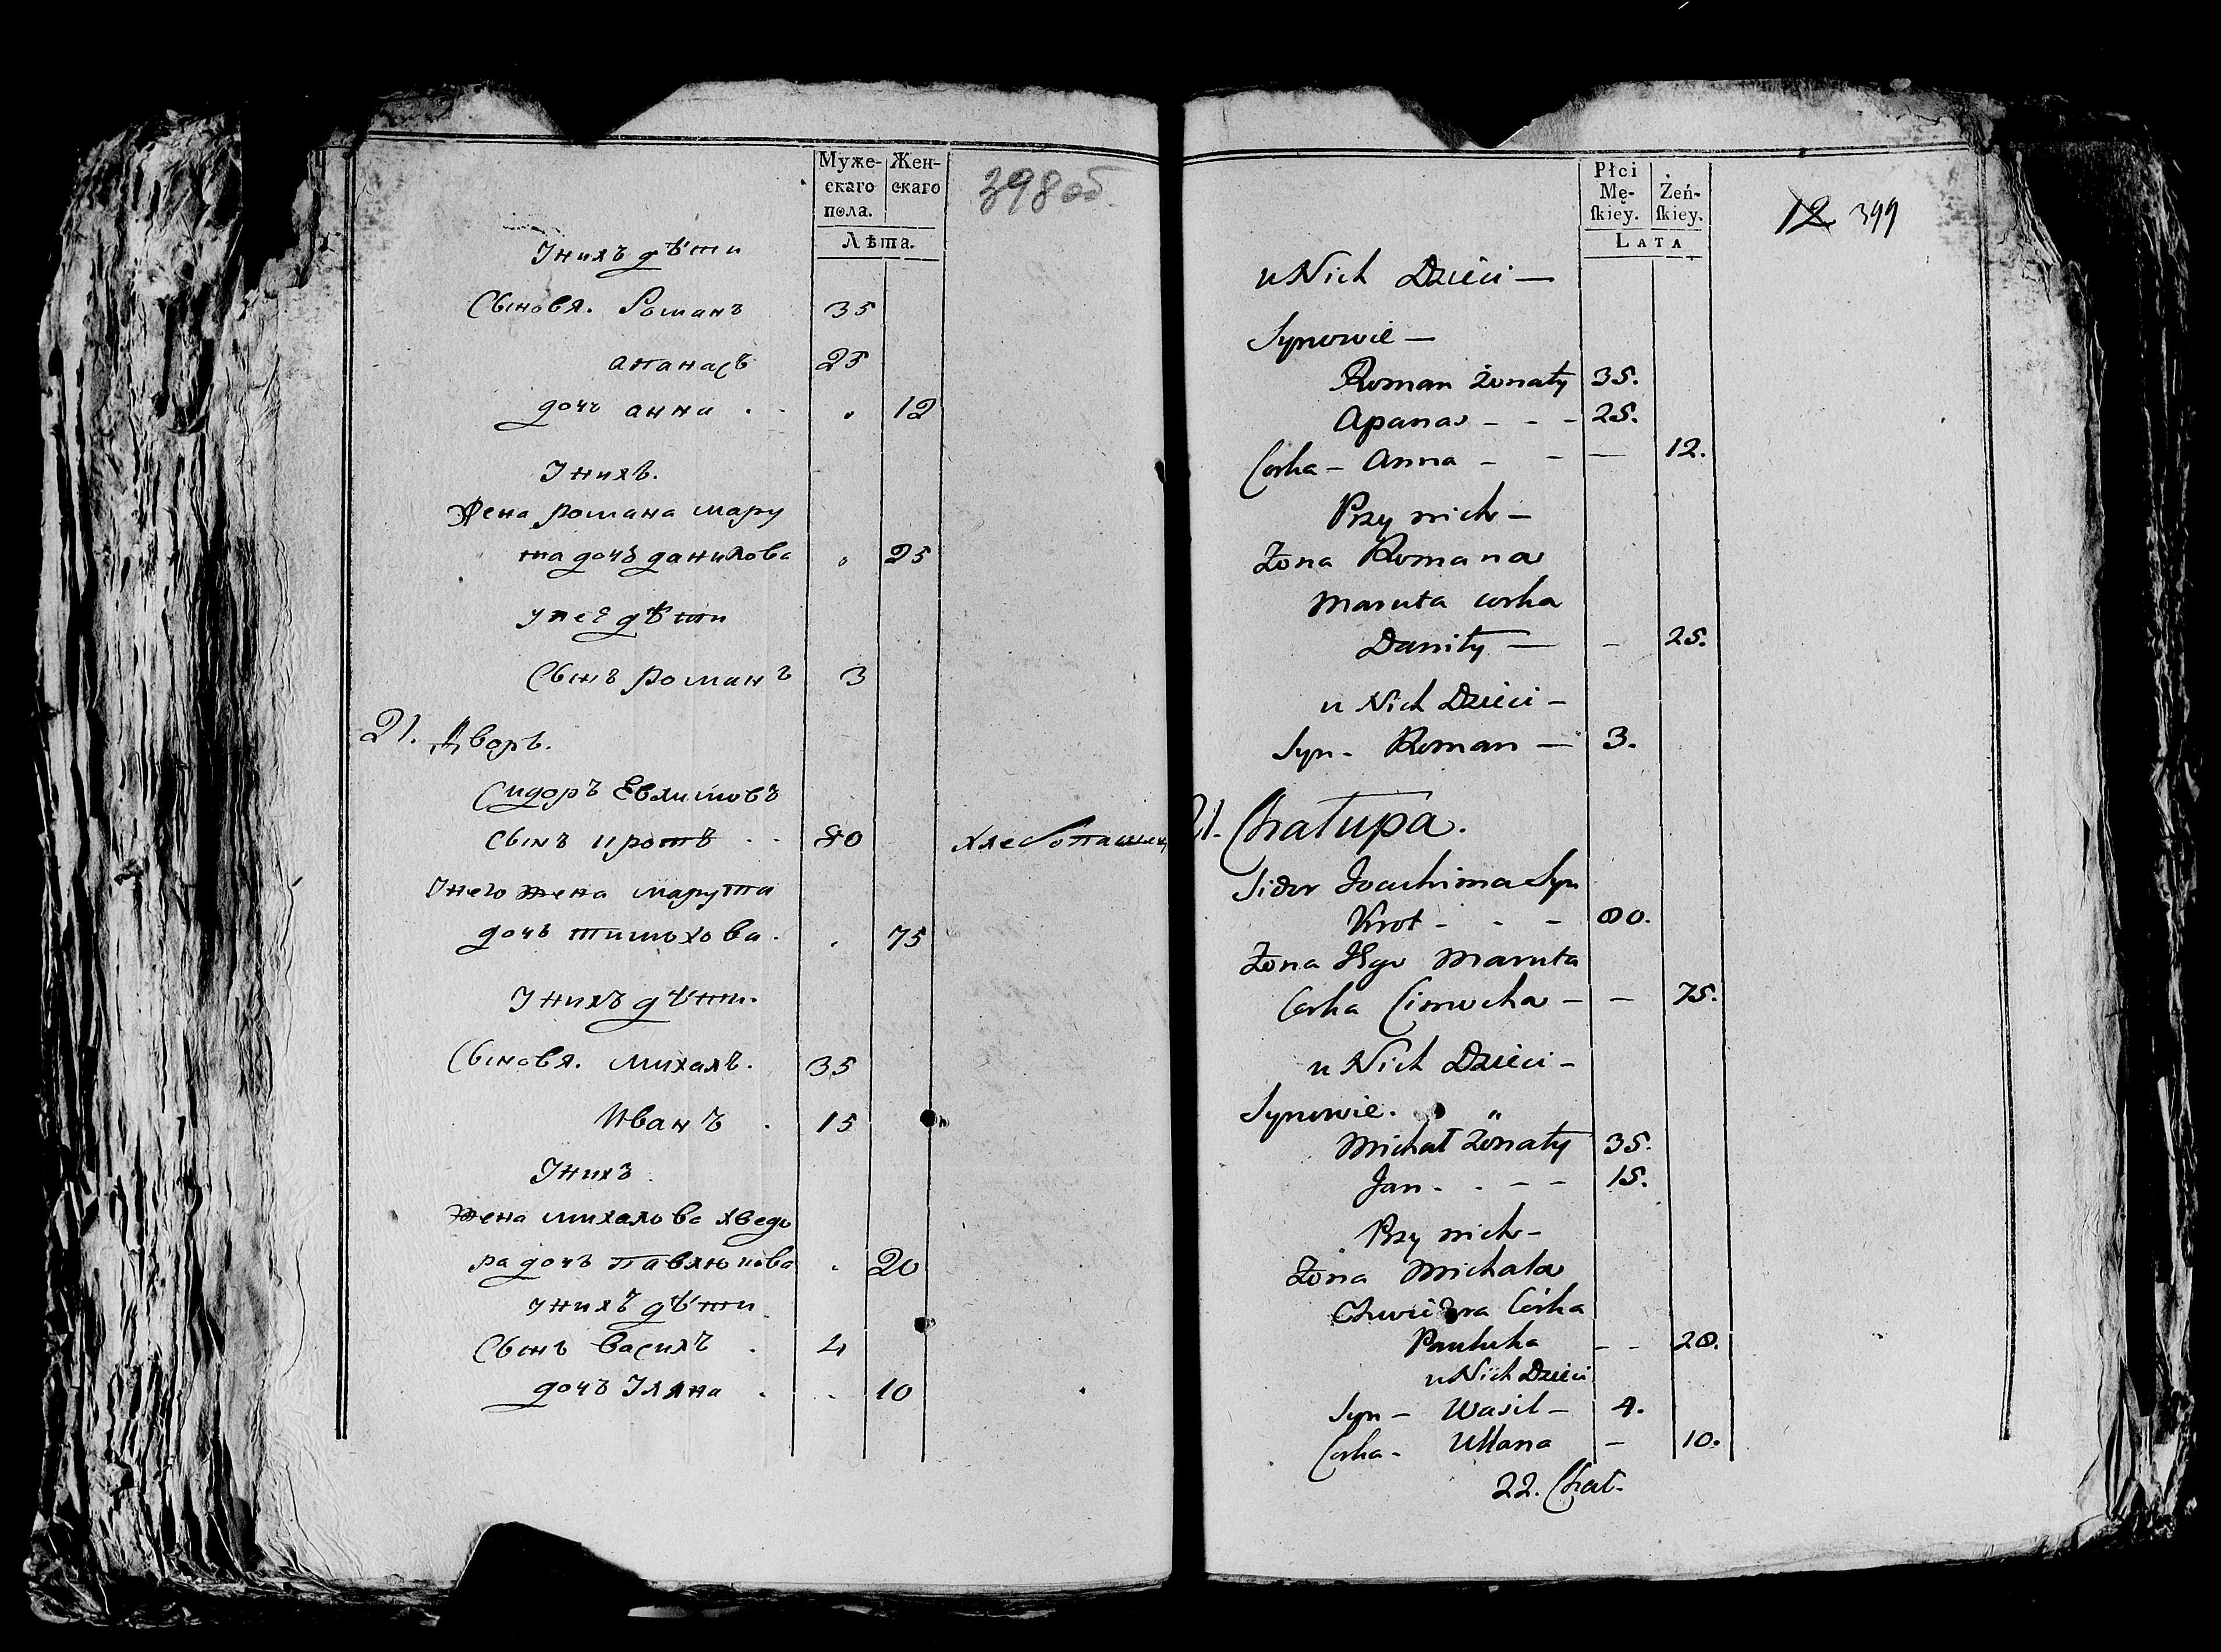 Муже-
скаго
пола.
Жен-
скаго
Лѣта.
398 об.
Унихъ дѣти
Сыновя. Романъ 35
апанасъ 25
дочъ анна . . „ 12
Унихъ.
Жена романа мару
та дочъ данилова „ 25
унеё дѣти
Сынъ романъ 3
21. Дворъ.
Сидоръ Евхимовъ
сынъ кротъ . . 80 хлебопашец
Унего жена марута
дочъ тимохова . . 75
Унихъ дѣти.
Сыновя. михалъ. 35
Иванъ . 15
Унихъ.
Жена михалова хведо
ра дочъ павлюкова . 20
унихъ дѣти
Сынъ василъ . 4
дочъ Уляна . . 10
Płci
Mę-
ſkiey.
Żeń-
ſkiey.
LATA
12 399
u Nich Dzieci —
Synowie —
Roman żonaty 35.
Apanas - - - 25.
Corka - Anna - - — 12.
Przy nich —
Żona Romana
Maruta corka
Daniły — – 25.
u Nich Dzieci –
Syn - Roman — 3.
21. Chałupa.
Sidor Joachima Syn
Krot - - - 80.
Żona Jego Maruta
Corka Cimocha - - 75.
u Nich Dzieci -
Synowie. "
Michał żonaty 35.
Jan - . - - 15.
Przy nich -
Żona Michała
Chwiedora Córka
Pauluka - - 20.
u Nich Dzieci
Syn - Wasil - 4.
Corka - Ullana - 10.
22. Chał-